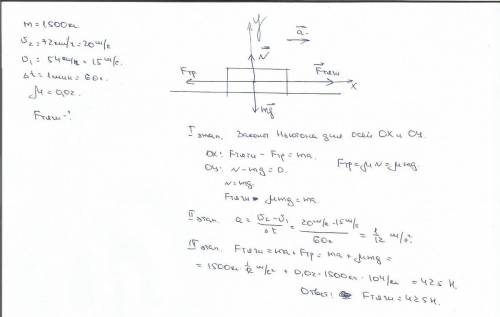 m = 1500кг.
υ₂ = 72км/ч = 20 м/с
υ₁ = 54км/ч = 15 м/с.
Δt = 1мин = 60с.
μ = 0,02.
Fтяги - ?
y
a
N
Fтр
Fтяги
x
mg
I этап. Закон Ньютона для осей OX и OY.
OX: Fтяги - Fтр = ma.
Fтр = μN = μmg.
OY: N - mg = 0.
N = mg.
Fтяги - μmg = ma.
II этап. a = (υ₂ - υ₁)/Δt = (20 м/с - 15 м/с)/60с = 1/12 м/с².
III этап. Fтяги = ma + Fтр = ma + μmg =
= 1500кг · 1/12 м/с² + 0,02 · 1500кг · 10Н/кг = 425 Н.
Ответ: Fтяги = 425Н.